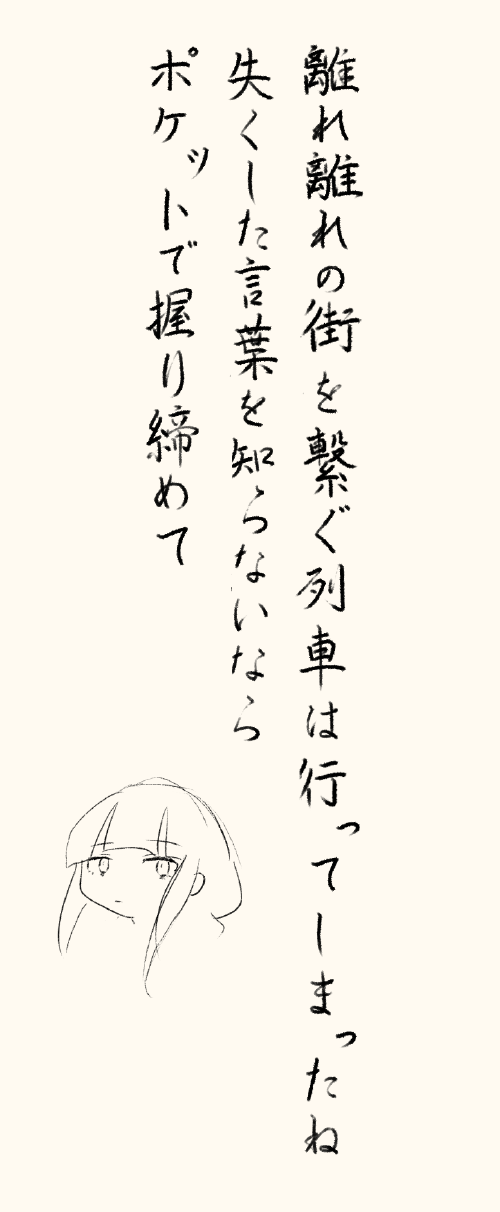 離れ離れの街を繋ぐ列車は行ってしまったね
失くした言葉を知らないなら
ポケットで握り締めて